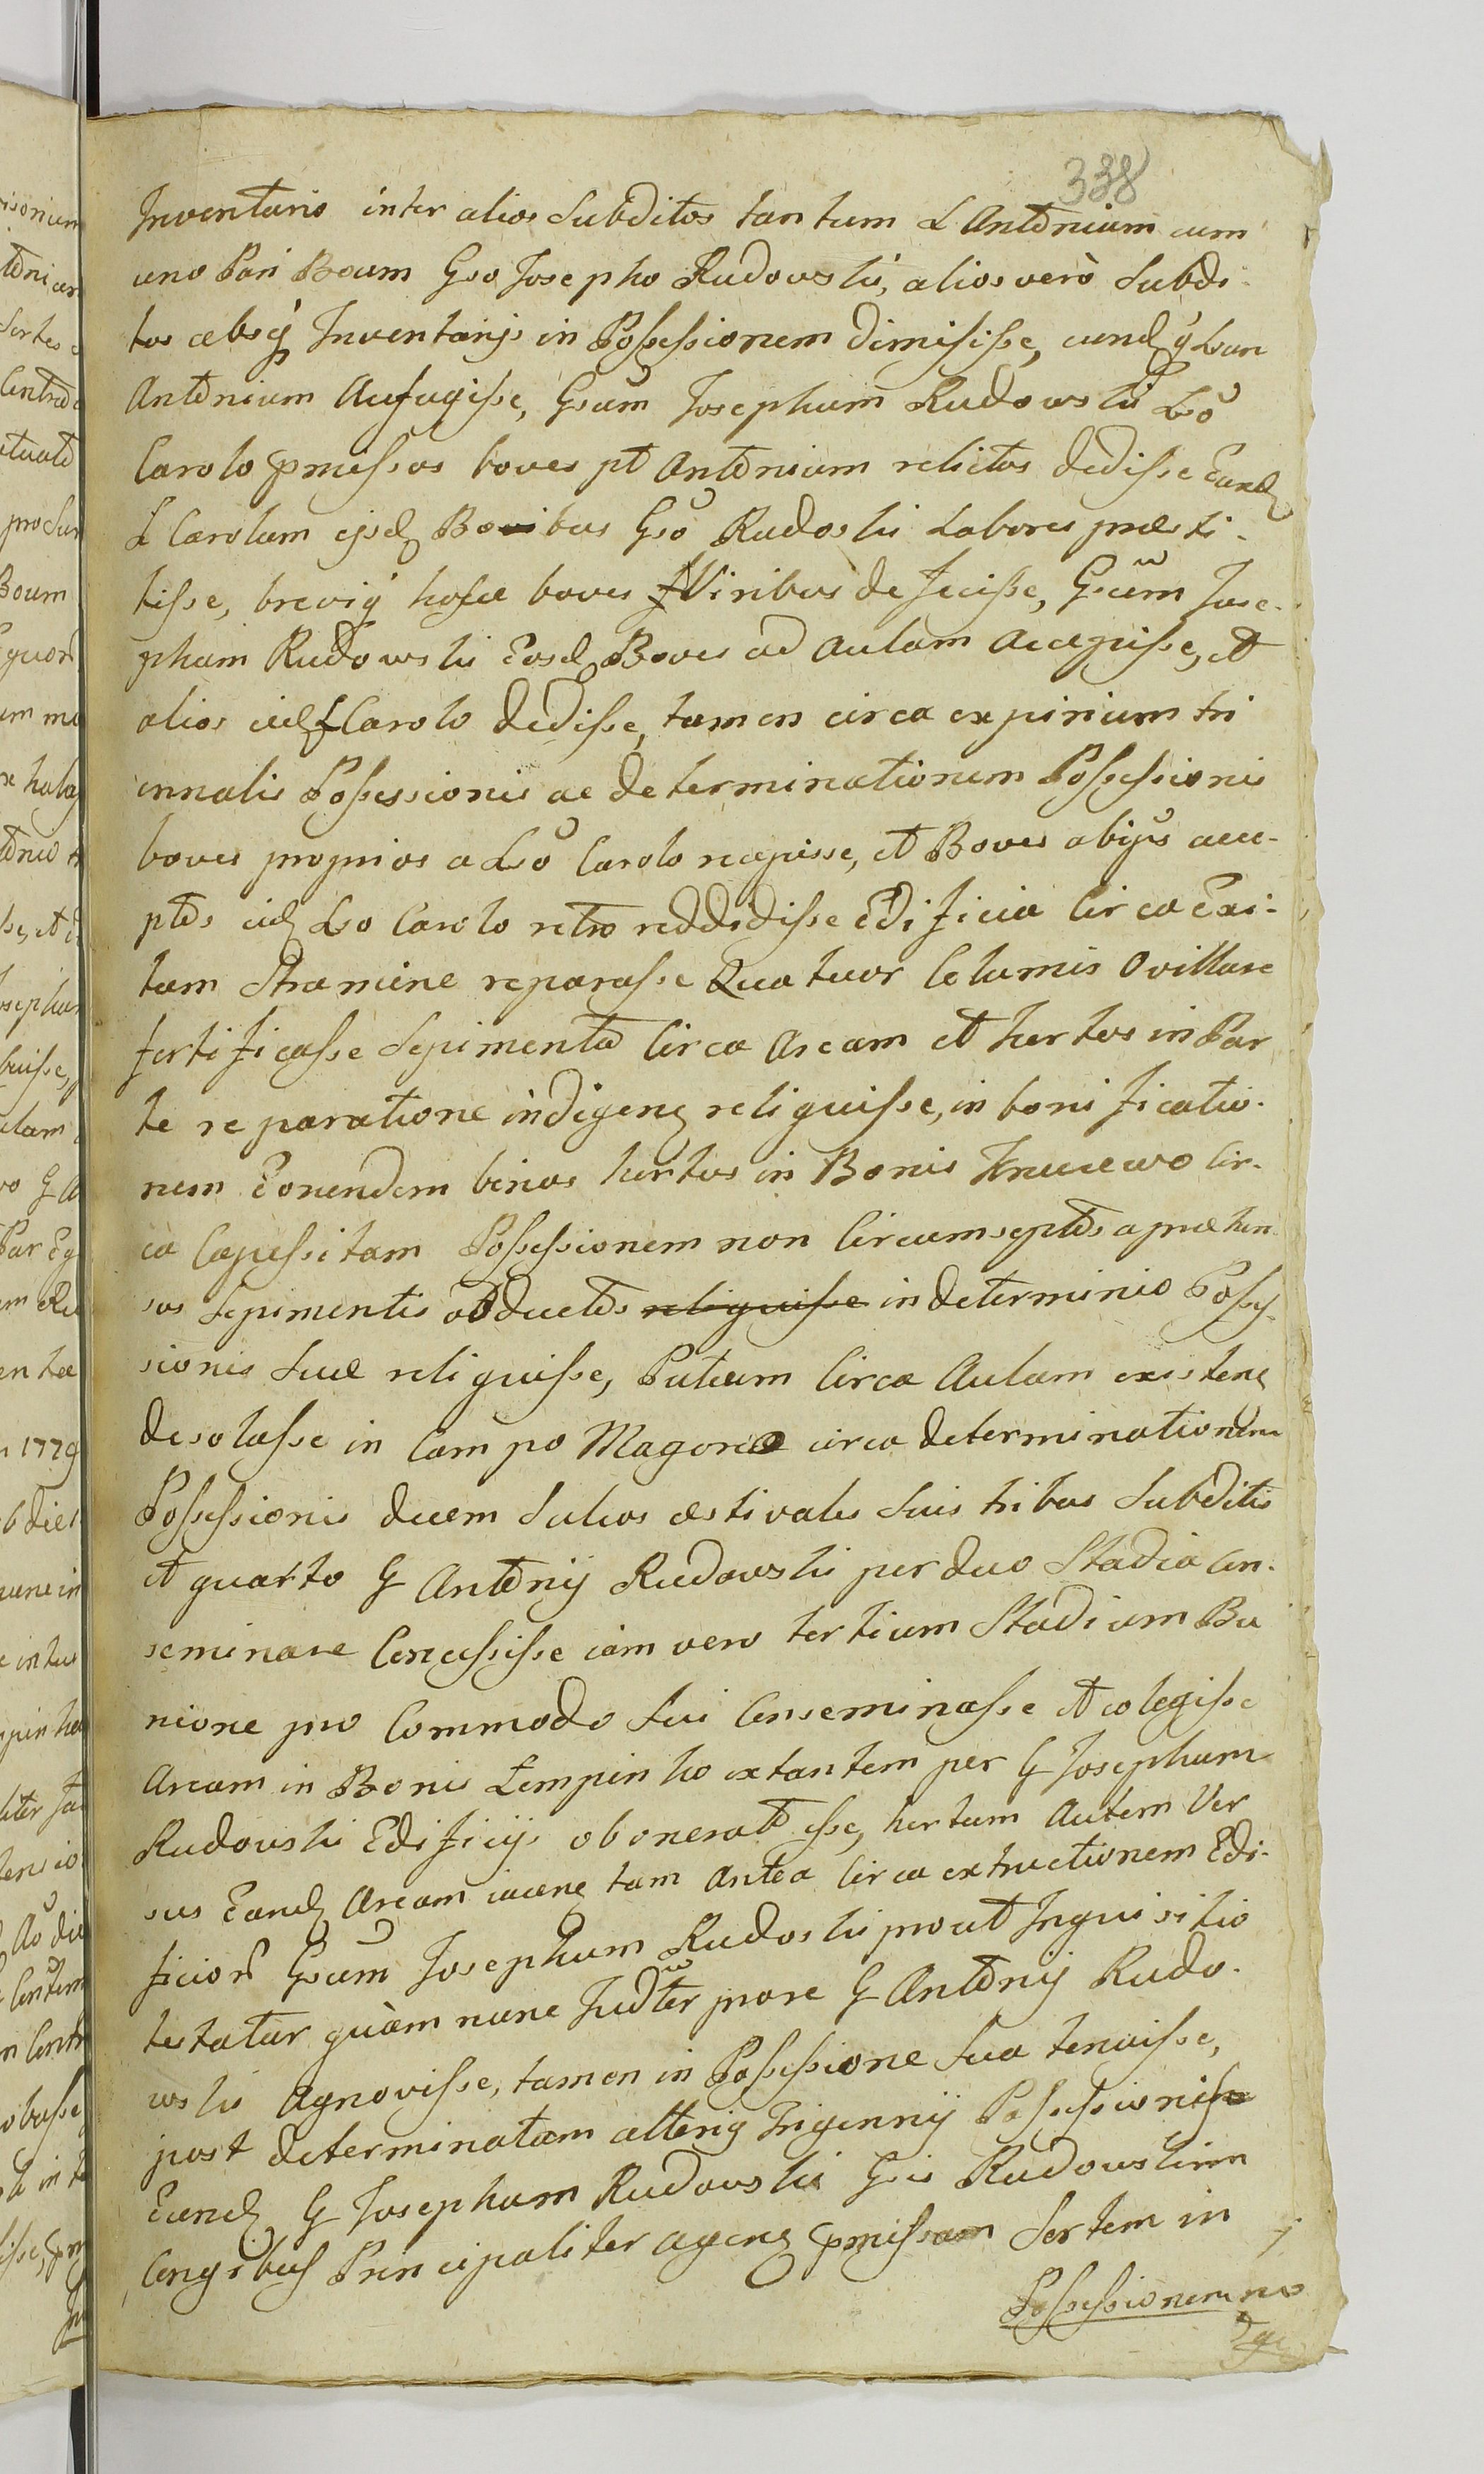 338
Inventario inter alios Subditos tantum L Antonium cum
uno Pari Boum Gso Josepho Rudowski, alios verò Subdi-
tos absq Inventarijs in Possessionem dimisisse, eundq Lum
Antonium Aufugisse, Gsum Josephum Rudowski Lso
Carolo pmissos boves pt Antonium relictos dedisse Eund
L Carolum ijsd Bovibus Gso Rudoski Labores præsti-
tisse, breviq hosce boves Viribus defecisse, Gsum Jose-
phum Rudowski Eosd Boves ad Aulam Accepisse, et
alios eid L Carolo dedisse, tamen circa expirium tri
ennalis Possessionis ac determinationem Possessionis
boves proprios a Lso Carolo recepisse, et Boves ab ijs acce-
ptos eid Lso Carolo retro reddidisse Edificia Circa Exi-
tum Stramine reparasse Quatuor Columis Ovillare
fortificasse Sepimenta Circa Aream et hortos in Par
te reparatione indigene reliquisse, in bonificatio-
nem Eorundem binos hortos in Bonis Kruczewo Cir-
ca Capessitam Possessionem non Circumseptos apræhen-
sos Sepimentis obductos reliquisse in determinio Posses-
sionis Suæ reliquisse, Puteum Circa Aulam existen
desolasse in Campo Magora circa determinationem
Possessionis decem Sulcos æstivales Suis tribus Subditis
et quarto G Antonij Rudowski per duo Stadia Con-
seminare Concessisse iam vero tertium Stadium Bu
nione pro Commodo Sui Conseminasse et colegisse
Aream in Bonis Łempinko extantem per G Josephum
Rudowski Edificijs obonerat esse, hortum Autem Ver
sus Eand Aream iacen tam Antea Circa extructionem Edi-
ficior Gsum Josephum Rudoski prout Inquisitio
testatur quàm nunc Judter pare G Antonij Rudo-
wski Agnovisse, tamen in Possessione Sua tenuisse,
post determinatam alterig Trigennij Possessionis
Eund G Josephum Rudowski Gsis Rudowskim
Congibus Principaliter agen pmissam Sortem in
Possessionem no